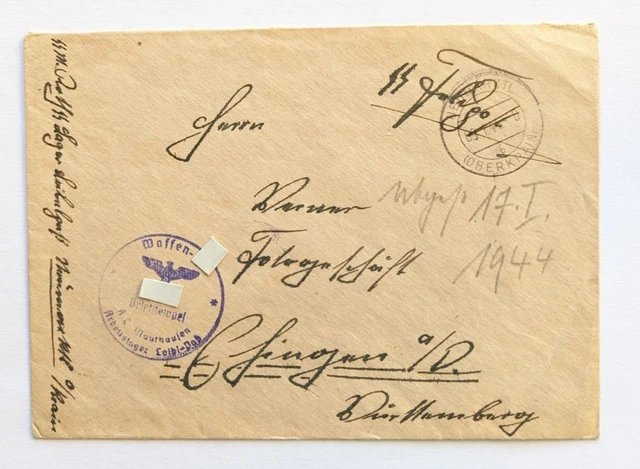 SS Feldpost
Herrn
Werner
Fotogeschäft
Ehingen a/D.
Württemberg
17. I.
1944
Waffen-
Briefstempel
K.L. Mauthausen
Arbeitslager Loibl-Paß
(OBERKRAIN)
Lager Loibl Neumarktl o/Krain